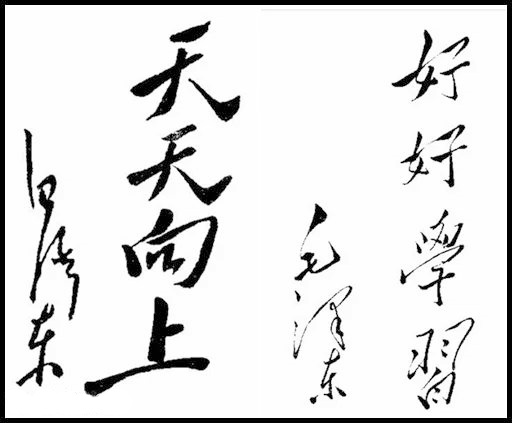 好好學習
毛澤东
天天向上
东